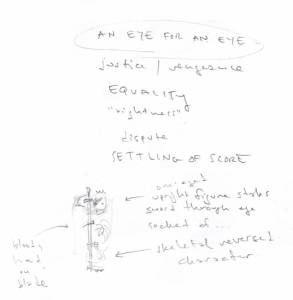 AN EYE FOR AN EYE
justice / vengeance
EQUALITY
"rightness"
dispute
SETTLING OF SCORE
one-eyed
upright figure stabs
sword through eye
socket of ...
skeletal reversed
character
bloody
hand
on
blade